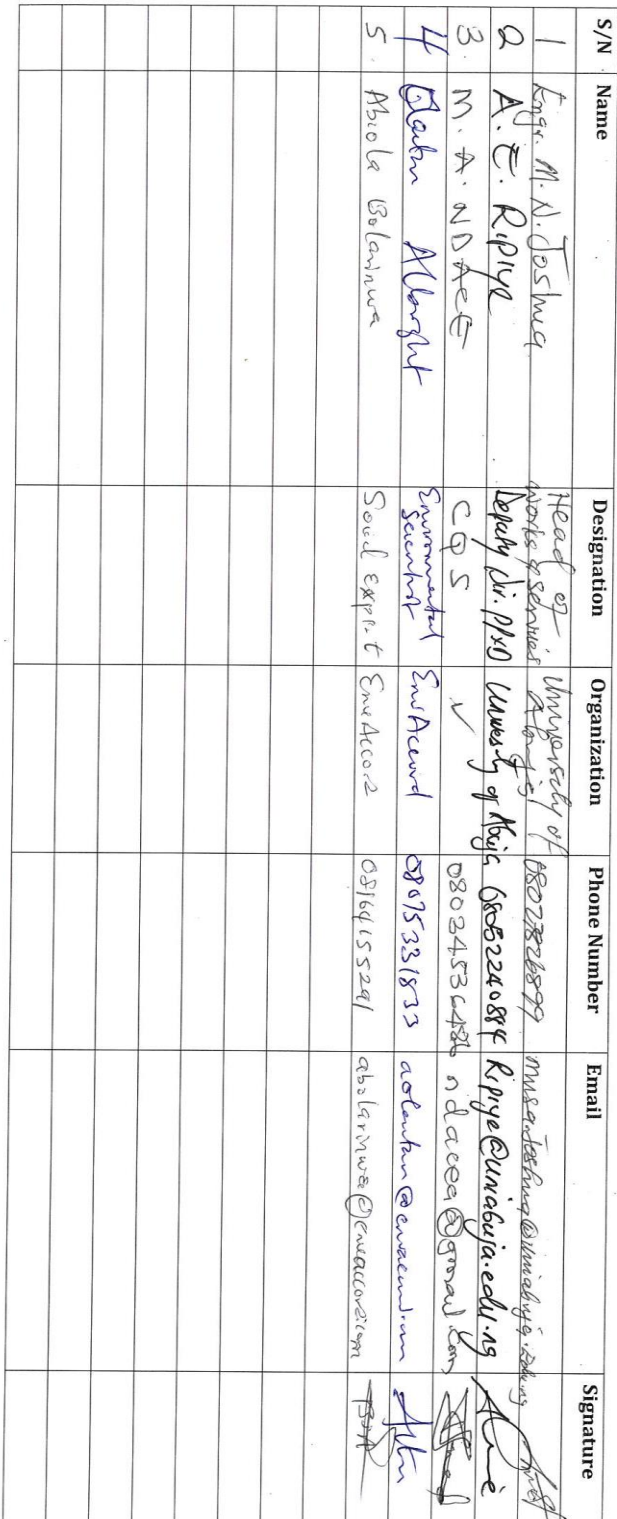 S/N Name Designation Organization Phone Number Email Signature
1 Engr. M. N. Joshua Head of works & services University of Abuja 08027826899
2 A. E. Ripiye Deputy Dir. PP&D University of Abuja 08052240884 Ripiye@uniabuja.edu.ng
3. M. A. NDACE CQS ✓ 08034536486 ndacea@gmail.com
4 Albright Environmental Scientist EnvAccord 08075331833
5. Abiola Bolarinwa Social Expert EnvAccord 08164155291 abolarinwa@envaccord.com